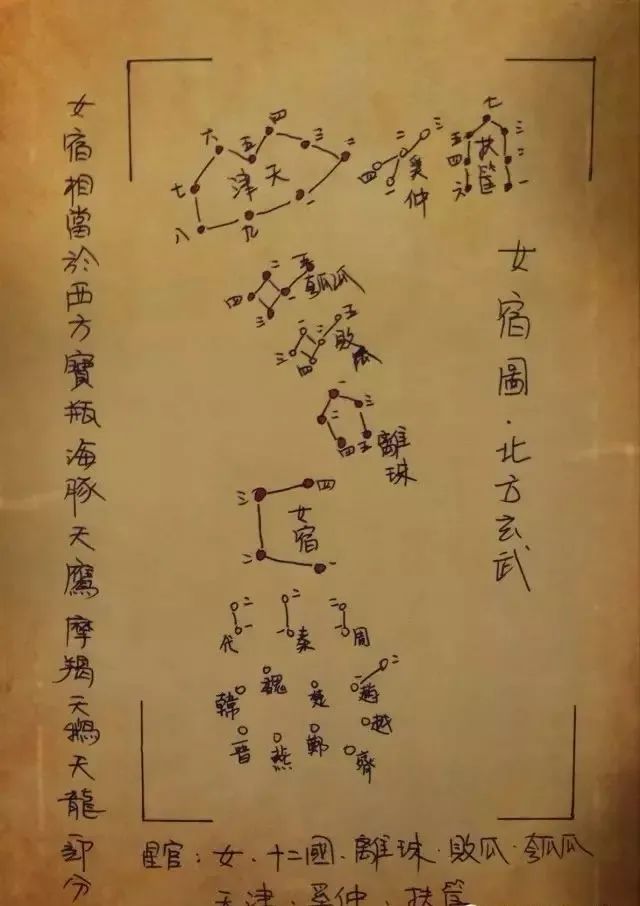 女宿圖·北方玄武
女宿相當於西方寶瓶海豚天鷹摩羯天鵝天龍部分
四
三
二
一
五
六
七
八
九
天津
三
二
一
四
奚仲
七
三
二
一
五
四
六
扶筐
二
五
一
四
三
瓠瓜
一
五
二
三
四
敗瓜
一
二
三
四
五
離珠
三
四
二
一
女宿
二
一
代
二
一
秦
二
一
周
韓
魏
楚
一
二
趙
越
晋
燕
鄭
齊
星官：女·十二國·離珠·敗瓜·瓠瓜
天津·奚仲·扶筐